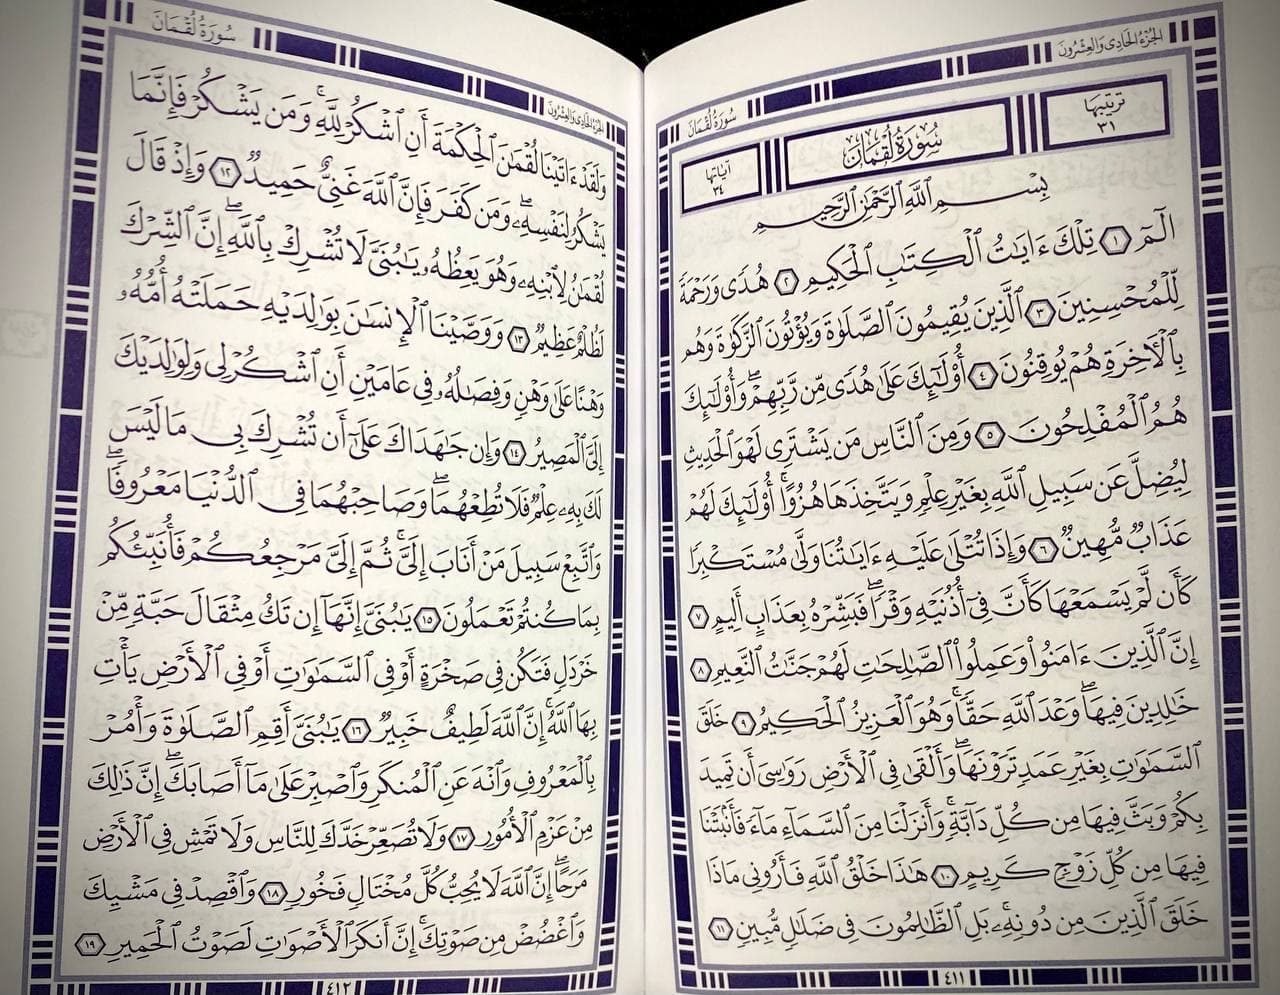 الجزء الحادي والعشرون
سورة لقمان
ترتيبها
٣١
سُورَةُ لُقْمَانَ
آياتها
٣٤
بِسْمِ ٱللَّهِ ٱلرَّحْمَٰنِ ٱلرَّحِيمِ
الٓمٓ ١ تِلْكَ ءَايَٰتُ ٱلْكِتَٰبِ ٱلْحَكِيمِ ٢ هُدًى وَرَحْمَةً
لِّلْمُحْسِنِينَ ٣ ٱلَّذِينَ يُقِيمُونَ ٱلصَّلَوٰةَ وَيُؤْتُونَ ٱلزَّكَوٰةَ وَهُم
بِٱلْءَاخِرَةِ هُمْ يُوقِنُونَ ٤ أُو۟لَٰٓئِكَ عَلَىٰ هُدًى مِّن رَّبِّهِمْ ۖ وَأُو۟لَٰٓئِكَ
هُمُ ٱلْمُفْلِحُونَ ٥ وَمِنَ ٱلنَّاسِ مَن يَشْتَرِى لَهْوَ ٱلْحَدِيثِ
لِيُضِلَّ عَن سَبِيلِ ٱللَّهِ بِغَيْرِ عِلْمٍ وَيَتَّخِذَهَا هُزُوًا ۚ أُو۟لَٰٓئِكَ لَهُمْ
عَذَابٌ مُّهِينٌ ٦ وَإِذَا تُتْلَىٰ عَلَيْهِ ءَايَٰتُنَا وَلَّىٰ مُسْتَكْبِرًا
كَأَن لَّمْ يَسْمَعْهَا كَأَنَّ فِىٓ أُذُنَيْهِ وَقْرًا ۖ فَبَشِّرْهُ بِعَذَابٍ أَلِيمٍ ٧
إِنَّ ٱلَّذِينَ ءَامَنُوا۟ وَعَمِلُوا۟ ٱلصَّٰلِحَٰتِ لَهُمْ جَنَّٰتُ ٱلنَّعِيمِ ٨
خَٰلِدِينَ فِيهَا ۖ وَعْدَ ٱللَّهِ حَقًّا ۚ وَهُوَ ٱلْعَزِيزُ ٱلْحَكِيمُ ٩ خَلَقَ
ٱلسَّمَٰوَٰتِ بِغَيْرِ عَمَدٍ تَرَوْنَهَا ۖ وَأَلْقَىٰ فِى ٱلْأَرْضِ رَوَٰسِىَ أَن تَمِيدَ
بِكُمْ وَبَثَّ فِيهَا مِن كُلِّ دَآبَّةٍ ۚ وَأَنزَلْنَا مِنَ ٱلسَّمَآءِ مَآءً فَأَنۢبَتْنَا
فِيهَا مِن كُلِّ زَوْجٍ كَرِيمٍ ١٠ هَٰذَا خَلْقُ ٱللَّهِ فَأَرُونِى مَاذَا
خَلَقَ ٱلَّذِينَ مِن دُونِهِۦ ۚ بَلِ ٱلظَّٰلِمُونَ فِى ضَلَٰلٍ مُّبِينٍ ١١
٤١١
الجزء الحادي والعشرون
سورة لقمان
وَلَقَدْ ءَاتَيْنَا لُقْمَٰنَ ٱلْحِكْمَةَ أَنِ ٱشْكُرْ لِلَّهِ ۚ وَمَن يَشْكُرْ فَإِنَّمَا
يَشْكُرُ لِنَفْسِهِۦ ۖ وَمَن كَفَرَ فَإِنَّ ٱللَّهَ غَنِىٌّ حَمِيدٌ ١٢ وَإِذْ قَالَ
لُقْمَٰنُ لِٱبْنِهِۦ وَهُوَ يَعِظُهُۥ يَٰبُنَىَّ لَا تُشْرِكْ بِٱللَّهِ ۖ إِنَّ ٱلشِّرْكَ
لَظُلْمٌ عَظِيمٌ ١٣ وَوَصَّيْنَا ٱلْإِنسَٰنَ بِوَٰلِدَيْهِ حَمَلَتْهُ أُمُّهُۥ
وَهْنًا عَلَىٰ وَهْنٍ وَفِصَٰلُهُۥ فِى عَامَيْنِ أَنِ ٱشْكُرْ لِى وَلِوَٰلِدَيْكَ
إِلَىَّ ٱلْمَصِيرُ ١٤ وَإِن جَٰهَدَاكَ عَلَىٰٓ أَن تُشْرِكَ بِى مَا لَيْسَ
لَكَ بِهِۦ عِلْمٌ فَلَا تُطِعْهُمَا ۖ وَصَاحِبْهُمَا فِى ٱلدُّنْيَا مَعْرُوفًا ۖ
وَٱتَّبِعْ سَبِيلَ مَنْ أَنَابَ إِلَىَّ ۚ ثُمَّ إِلَىَّ مَرْجِعُكُمْ فَأُنَبِّئُكُم
بِمَا كُنتُمْ تَعْمَلُونَ ١٥ يَٰبُنَىَّ إِنَّهَآ إِن تَكُ مِثْقَالَ حَبَّةٍ مِّنْ
خَرْدَلٍ فَتَكُن فِى صَخْرَةٍ أَوْ فِى ٱلسَّمَٰوَٰتِ أَوْ فِى ٱلْأَرْضِ يَأْتِ
بِهَا ٱللَّهُ ۚ إِنَّ ٱللَّهَ لَطِيفٌ خَبِيرٌ ١٦ يَٰبُنَىَّ أَقِمِ ٱلصَّلَوٰةَ وَأْمُرْ
بِٱلْمَعْرُوفِ وَٱنْهَ عَنِ ٱلْمُنكَرِ وَٱصْبِرْ عَلَىٰ مَآ أَصَابَكَ ۖ إِنَّ ذَٰلِكَ
مِنْ عَزْمِ ٱلْأُمُورِ ١٧ وَلَا تُصَعِّرْ خَدَّكَ لِلنَّاسِ وَلَا تَمْشِ فِى ٱلْأَرْضِ
مَرَحًا ۖ إِنَّ ٱللَّهَ لَا يُحِبُّ كُلَّ مُخْتَالٍ فَخُورٍ ١٨ وَٱقْصِدْ فِى مَشْيِكَ
وَٱغْضُضْ مِن صَوْتِكَ ۚ إِنَّ أَنكَرَ ٱلْأَصْوَٰتِ لَصَوْتُ ٱلْحَمِيرِ ١٩
٤١٢